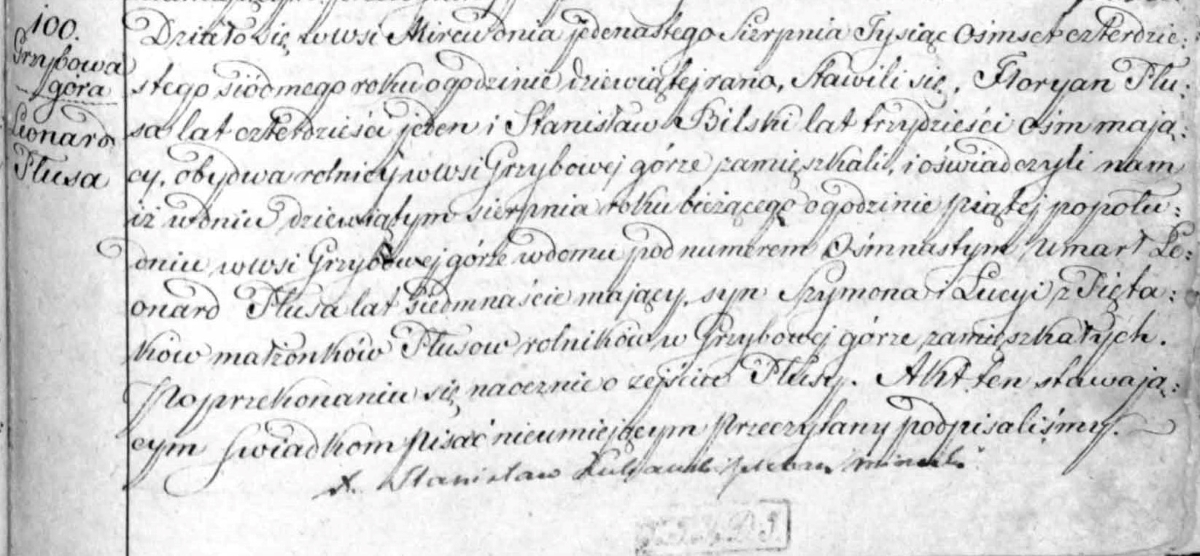 100.
Grzybowa
góra
Leonard
Flusa
Działo się w wsi Mirew dnia jedenastego Sierpnia Tysiąc Ośmset czterdzie:
stego siódmego roku o godzinie dziewiątej rano, Stawili się, Floryan Flu:
sa lat czterdzieści jeden i Stanisław Bilski lat trzydzieści ośm mają:
cy, obydwa rolnicy w wsi Grzybowej górze zamięszkali, i oświadczyli nam
iż w dniu dziewiątym sierpnia roku bieżącego o godzinie piątej popołu:
dniu w wsi Grzybowej górze w domu pod numerem Ośmnastym Umarł Le:
onard Flusa lat siedmnaście mający, syn Szymona i Lucyi z Pięta:
ków małżonków Flusow rolników w Grzybowej górze zamieszkałych.
Po przekonaniu się nacznie o zejściu Flusy. Akt ten stawają:
cym świadkom pisać nieumiejącym przeczytany podpisaliśmy.
X. Stanisław